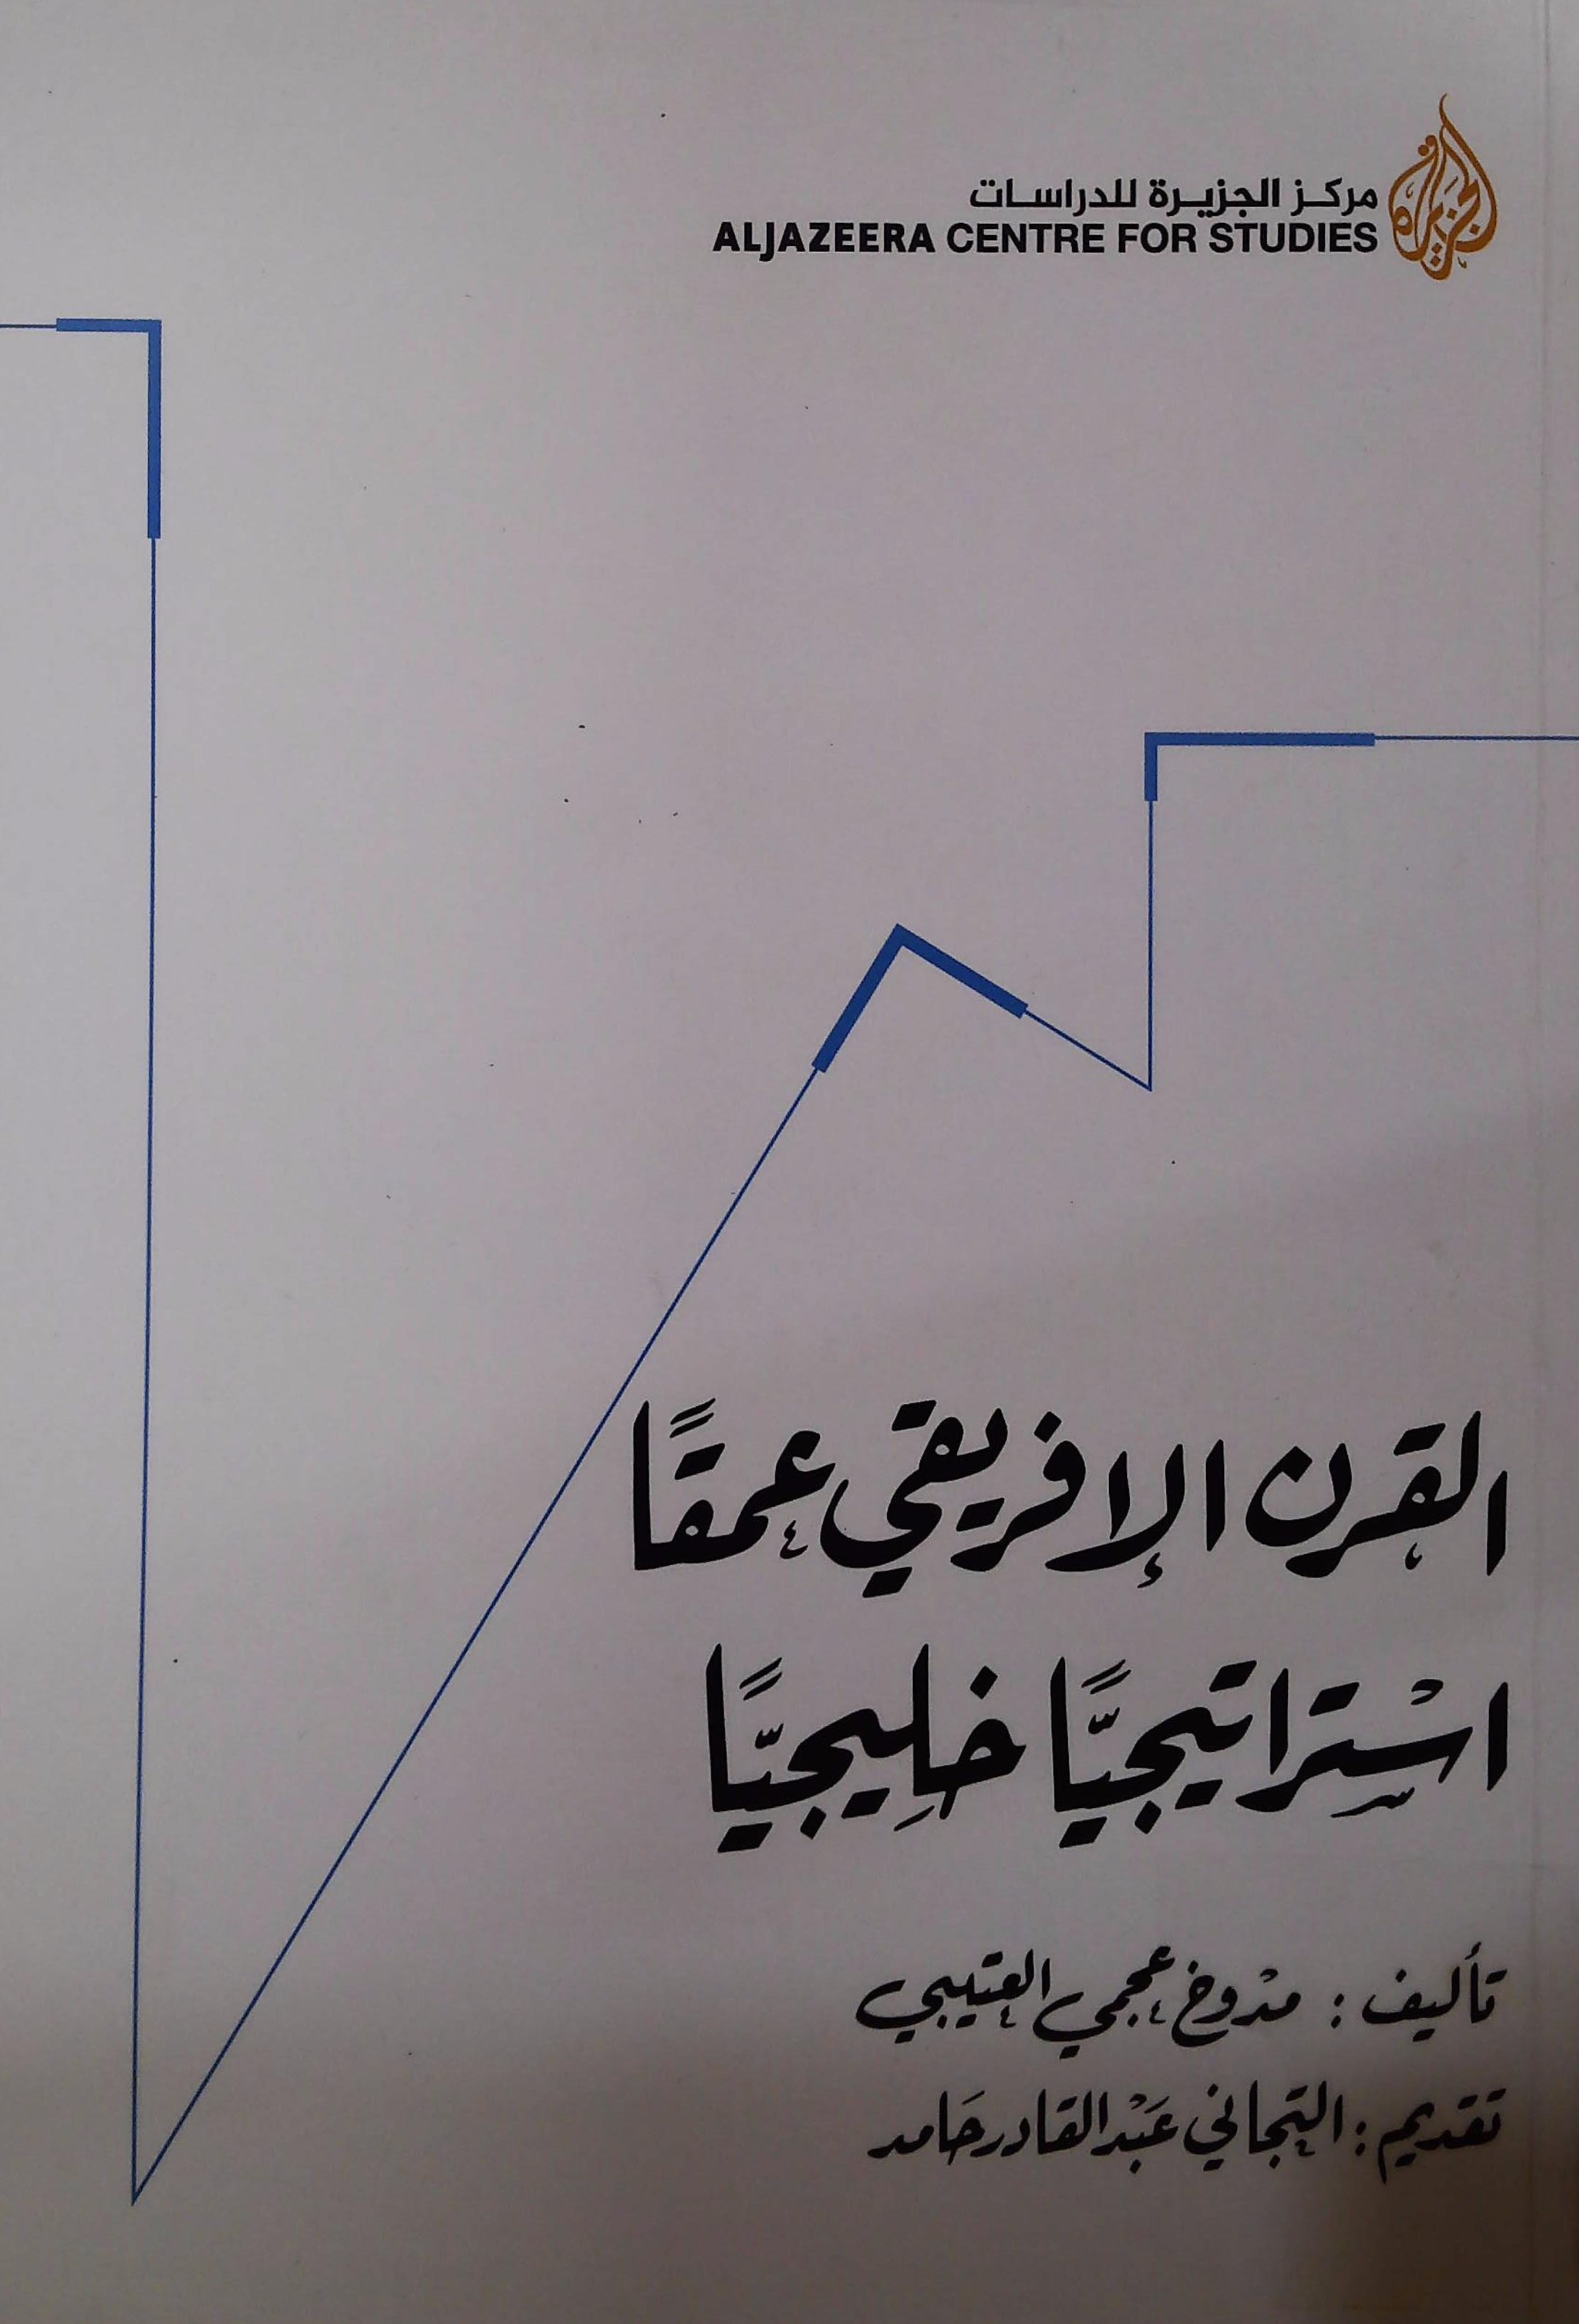 الجزيرة
مركز الجزيرة للدراسات
ALJAZEERA CENTRE FOR STUDIES
القرن الإفريقي عمقًا
اسْتراتيجيًّا خلِيجيًّا
تأليف: مدْوخ عجمي العتيبي
تقديم: التجاني عَبْد القادر حَامد